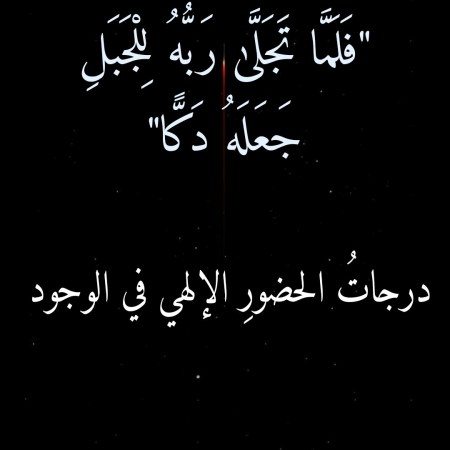 "فَلَمَّا تَجَلَّىٰ رَبُّهُ لِلْجَبَلِ
جَعَلَهُ دَكًّا"
درجاتُ الحضورِ الإلهي في الوجود